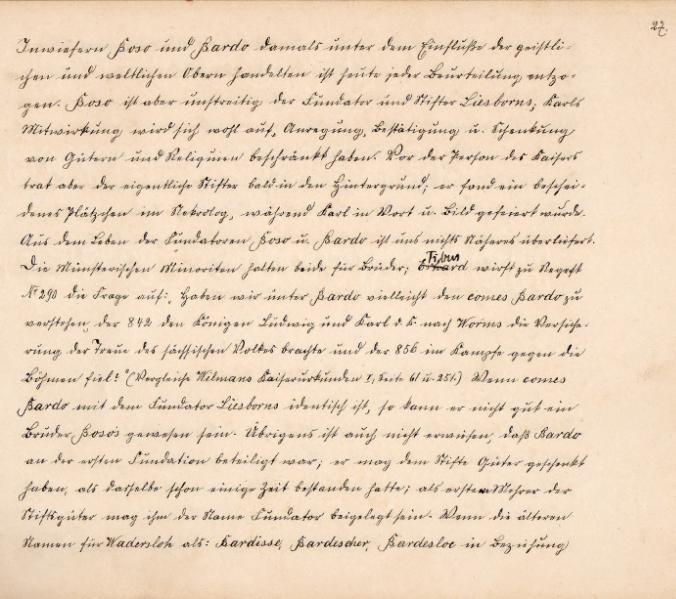 27.
Inwiefern Boso und Bardo damals unter dem Einfluße der geistli-
chen und weltlichen Obern handelten ist heute jeder Beurteilung entzo-
gen. Boso ist aber unstreitig der Fundator und Stifter Liesborns, Karls
Mitwirkung wird sich wohl auf Anregung, Bestätigung u. Schenkung
von Gütern und Reliquien beschränkt haben. Vor der Person des Kaisers
trat aber der eigentliche Stifter bald in den Hintergrund; er fand ein beschei-
denes Plätzchen im Nekrolog, während Karl in Wort u. Bild gefeiert wurde.
Aus dem Leben der Fundatoren Boso u. Bardo ist uns nichts Näheres überliefert.
Die Münsterischen Minoriten halten beide für Brüder; Tibus wirft zu Regest
No 290 die Frage auf: „Haben wir unter Bardo vielleicht den comes Bardo zu
verstehen, der 842 den Königen Ludwig und Karl d. K. nach Worms die Versiche-
rung der Treue des sächsischen Volkes brachte und der 856 im Kampfe gegen die
Böhmen fiel?" (Vergleiche Wilmans Kaiserurkunden I, Seite 61 u. 251.) Wenn comes
Bardo mit dem Fundator Liesborns identisch ist, so kann er nicht gut ein
Bruder Bosos gewesen sein. Übrigens ist auch nicht erwiesen, daß Bardo
an der ersten Fundation beteiligt war; er mag dem Stifte Güter geschenkt
haben, als dasselbe schon einige Zeit bestanden hatte; als erster Mehrer der
Stiftsgüter mag ihm der Name Fundator beigelegt sein. Wenn die älteren
Namen für Wadersloh als: Bardisse, Bardescher, Bardesloe in Beziehung